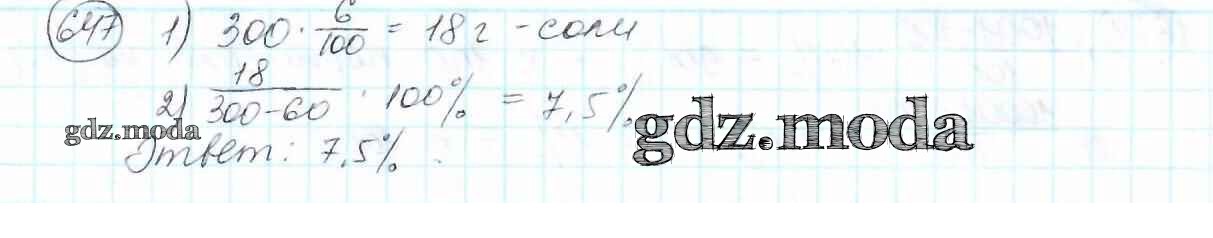 647 1) 300 · 6/100 = 18 г - соли
2) 18/(300-60) · 100% = 7,5%
gdz.moda
gdz.moda
Ответ: 7,5%.